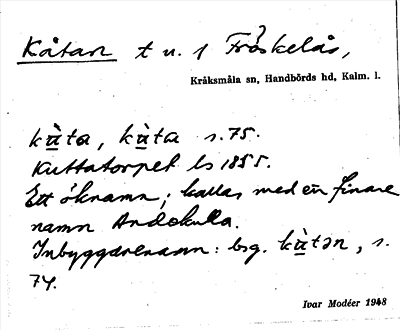 Kåtan t u. 1 Fröskelås,
Kråksmåla sn, Handbörds hd, Kalm. l.
kù̱ta, kù̱ta s. 75.
Kuttatorpet ls 1855.
Ett öknamn; kallas med en finare
namn Andokulla.
Inbyggarenamn: bsg. kù̱tən, s.
74.
Ivar Modéer 1948